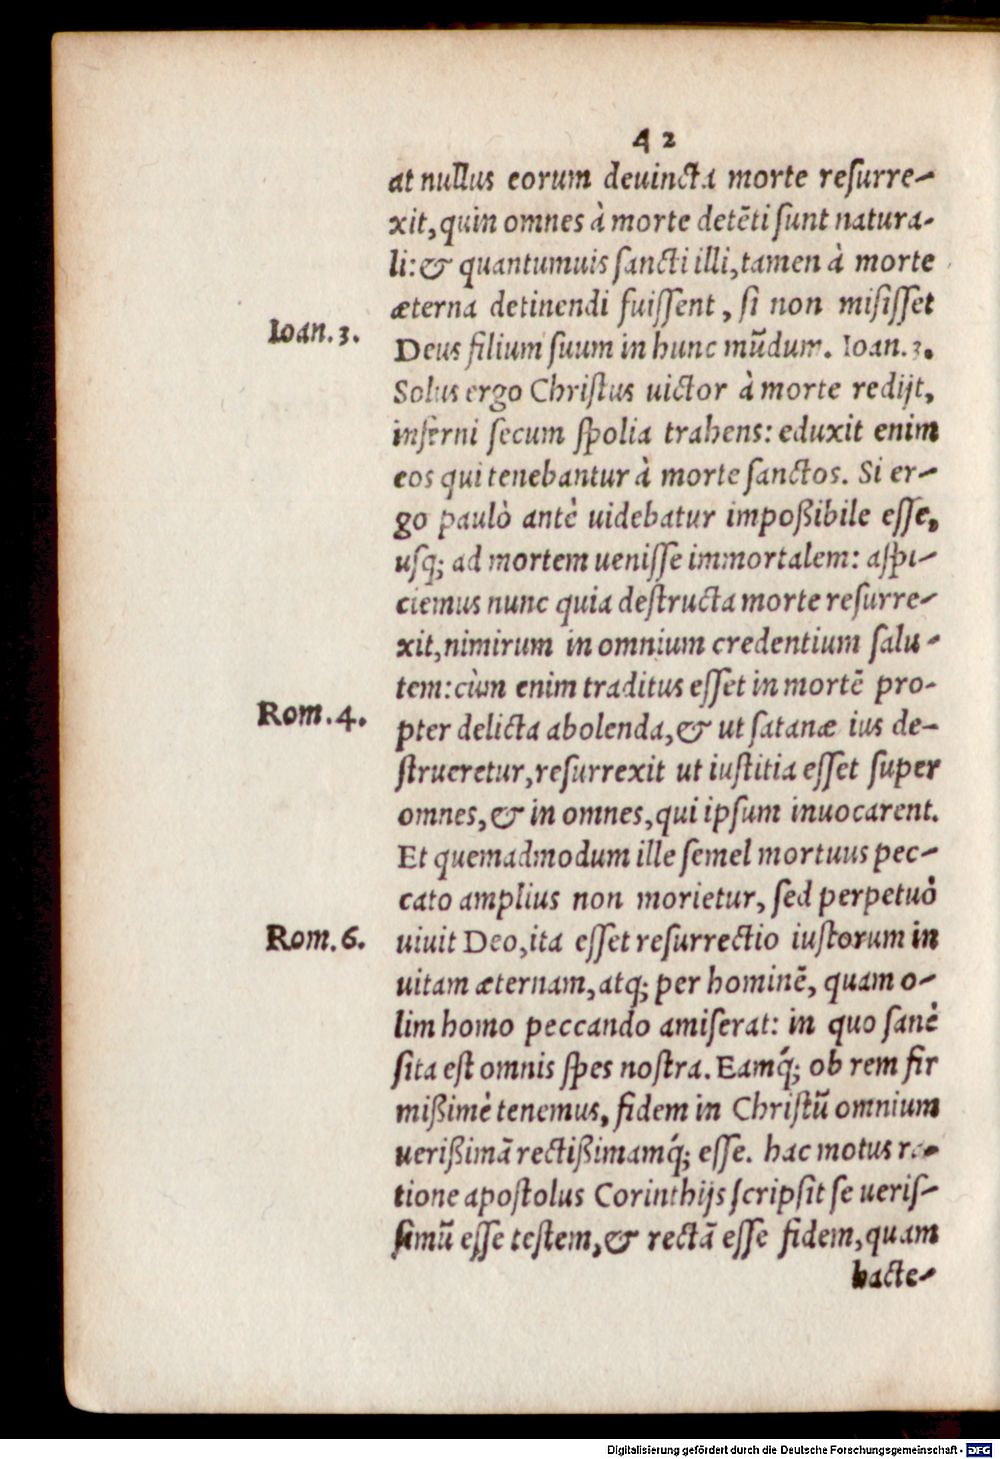 42
at nullus eorum deuincta morte reſurre-
xit, quin omnes à morte detẽti ſunt natura-
li: & quantumuis ſancti illi, tamen à morte
æterna detinendi fuiſſent, ſi non miſiſſet
Ioan. 3.
Deus filium ſuum in hunc mũdum. Ioan. 3.
Solus ergo Chriſtus uictor à morte redijt,
inferni ſecum ſpolia trahens: eduxit enim
eos qui tenebantur à morte ſanctos. Si er-
go paulò antè uidebatur impoßibile eſſe,
uſq; ad mortem ueniſſe immortalem: aſpi-
ciemus nunc quia deſtructa morte reſurre-
xit, nimirum in omnium credentium ſalu-
tem: cùm enim traditus eſſet in mortẽ pro-
Rom. 4.
pter delicta abolenda, & ut ſatanæ ius de-
ſtrueretur, reſurrexit ut iuſtitia eſſet ſuper
omnes, & in omnes, qui ipſum inuocarent.
Et quemadmodum ille ſemel mortuus pec-
cato amplius non morietur, ſed perpetuò
Rom. 6.
uiuit Deo, ita eſſet reſurrectio iuſtorum in
uitam æternam, atq; per hominẽ, quam o-
lim homo peccando amiſerat: in quo ſanè
ſita eſt omnis ſpes noſtra. Eamq́; ob rem fir
mißimè tenemus, fidem in Chriſtũ omnium
uerißimã rectißimamq́; eſſe. hac motus ra-
tione apoſtolus Corinthijs ſcripſit ſe ueriſ-
ſimũ eſſe teſtem, & rectã eſſe fidem, quam
hacte-
Digitalisierung gefördert durch die Deutsche Forschungsgemeinschaft - DFG